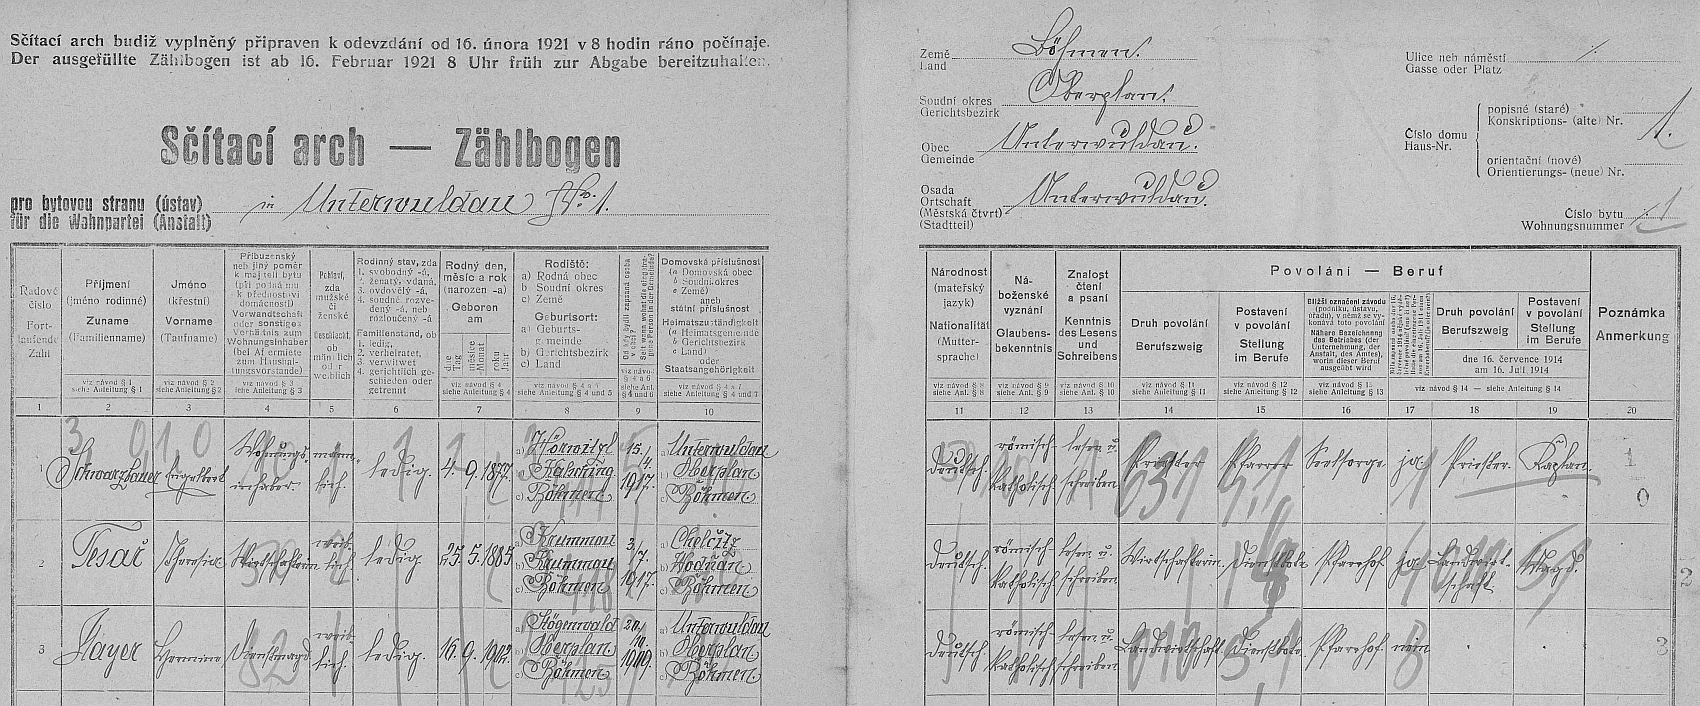 Sčítací arch budiž vyplněný připraven k odevzdání od 16. února 1921 v 8 hodin ráno počínaje.
Der ausgefüllte Zählbogen ist ab 16. Februar 1921 8 Uhr früh zur Abgabe bereitzuhalten.
Sčítací arch — Zählbogen
pro bytovou stranu (ústav)
für die Wohnpartei (Anstalt)
in Unterwuldau No. 1.
Země
Land
Böhmen.
Soudní okres
Gerichtsbezirk
Oberplan.
Obec
Gemeinde
Unterwuldau.
Osada
Ortschaft
(Městská čtvrť)
(Stadtteil)
Unterwuldau.
Ulice neb náměstí
Gasse oder Platz
Číslo domu
Haus-Nr.
popisné (staré)
Konskriptions- (alte) Nr.
1.
orientační (nové)
Orientierungs- (neue) Nr.
Číslo bytu
Wohnungsnummer
1
Řadové
číslo
Fort-
laufende
Zahl
1
Příjmení
(jméno rodinné)
Zuname
(Familienname)
viz návod § 1
siehe Anleitung § 1
2
Jméno
(křestní)
Vorname
(Taufname)
viz návod § 2
siehe Anleitung § 2
3
Příbuzenský
neb jiný poměr
k majiteli bytu
(při podnájmu
k přednostovi
domácnosti)
Verwandtschaft
oder sonstiges
Verhältnis zum
Wohnungsinhaber
(bei Aftermiete
zum Haushal-
tungsvorstande)
viz návod § 3
siehe Anleitung § 3
4
Pohlaví,
zda
mužské
či
ženské
Geschlecht,
ob
männlich
oder
weiblich
5
Rodinný stav, zda
1. svobodný -á,
2. ženatý, vdaná,
3. ovdovělý -á,
4. soudně rozve-
dený -á, neb
rozloučený -á
Familienstand, ob
1. ledig,
2. verheiratet,
3. verwitwet
4. gerichtlich ge-
schieden oder
getrennt
6
Rodný den,
měsíc a rok
(narozen -a)
Geboren
am
dne
Tag
měsíce
Monat
roku
Jahr
viz návod § 4
siehe Anleitung § 4
7
Rodiště:
a) Rodná obec
b) Soudní okres
c) Země
Geburtsort:
a) Geburts-
gemeinde
b) Gerichtsbezirk
c) Land
viz návod § 4 a 5
siehe Anleitung § 4 und 5
8
9
Domovská příslušnost
(a Domovská obec
b Soudní okres
c Země)
aneb
státní příslušnost
Heimatszuständigkeit
(a Heimatsgemeinde
b Gerichtsbezirk
c Land)
oder
Staatsangehörigkeit
viz návod § 4 a 7
siehe Anleitung § 4 und 7
10
Národnost
(mateřský
jazyk)
Nationalität
(Mutter-
sprache)
viz návod § 8
siehe Anl. § 8
11
Ná-
boženské
vyznání
Glaubens-
bekenntnis
viz návod § 9
siehe Anl. § 9
12
Znalost
čtení
a psaní
Kenntnis
des Lesens
und
Schreibens
viz návod § 10
siehe Anl. § 10
13
Povolání — Beruf
Druh povolání
Berufszweig
viz návod § 11
siehe Anleitung § 11
14
Postavení
v povolání
Stellung
im Berufe
viz návod § 12
siehe Anleitung § 12
15
Bližší označení závodu
(podniku, ústavu,
úřadu), v němž se vy-
konává toto povolání
Nähere Bezeichnung
des Betriebes (der
Unternehmung, der
Anstalt, des Amtes),
worin dieser Beruf
ausgeübt wird
viz návod § 13
siehe Anleitung § 13
16
17
Druh povolání
Berufszweig
Postavení
v povolání
Stellung
im Berufe
dne 16. července 1914
am 16. Juli 1914
viz návod § 14 — siehe Anleitung § 14
18
19
Poznámka
Anmerkung
20
1 Schwarzbauer Engelbert Wohnungs-inhaber männ-lich ledig. 4. 9. 1877 a) Höritz b) Kalsching c) Böhmen 15. 4. 1917. a) Unterwuldau b) Oberplan c) Böhmen
deutsch. römisch-katholisch lesen u. schreiben Priester Pfarrer Seelsorge ja Priester. Kaplan.
2 Tesař Theresia Wirtschafterin weib-lich ledig 25. 5. 1885 a) Krummau b) Krummau c) Böhmen 3. 7. 1917. a) Chelčitz b) Hodňan c) Böhmen
deutsch. römisch-katholisch lesen u. schreiben Wirtschafterin Dienstbote Pfarrhof. ja Landwirt-schaft Magd.
3 Hayer Hermine, Dienstmagd weib-lich ledig. 16. 9. 1902. b) Oberplan c) Böhmen 1919. a) Unterwuldau b) Oberplan c) Böhmen
deutsch. römisch-katholisch lesen u. schreiben Landwirtschaft Dienstbote Pfarrhof. nein